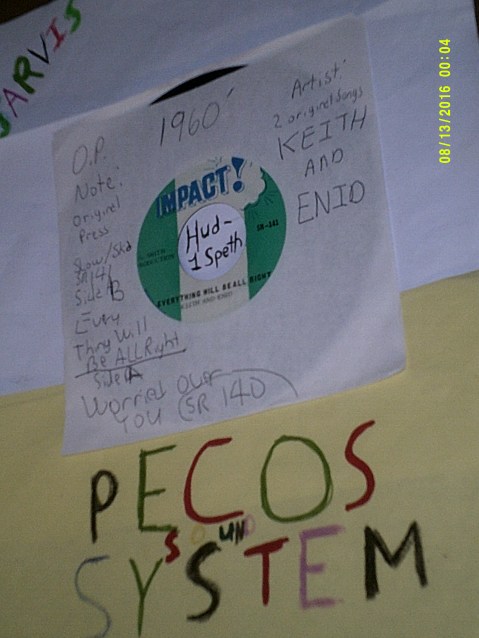 JARVIS
08/13/2016 00:04
1960'
O.P.
Note:
Original
Press
Slow/Ska
SR 141
Side B
Every
Thing Will
Be ALL Right
Side A
Worried Over
YOU (SR 140
Artist:
2 original songs
KEITH
AND
ENID
IMPACT!
Hud-
1 Speth
SR-141
EVERYTHING WILL BE ALL RIGHT
KEITH AND ENID
PECOS
SOUND
SYSTEM